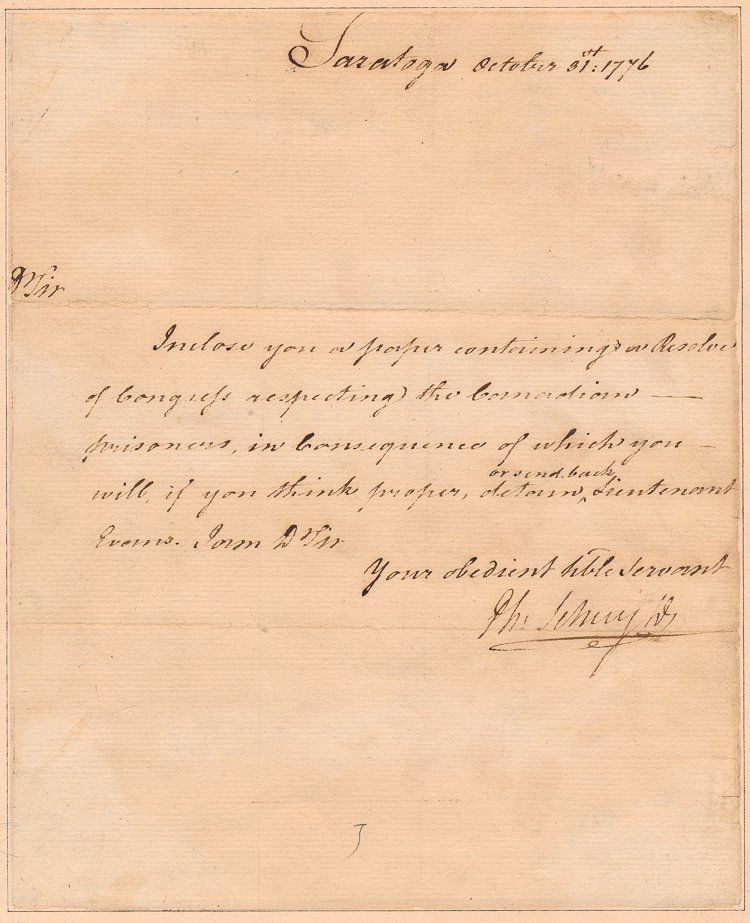 Saratoga October 31st: 1776
Dr Sir
Inclose you a paper containing a Resolve
of Congress respecting the Canadian
prisoners, in Consequence of which you
will, if you think proper, detain, or send back Lieutenant
Evans. I am Dr Sir
Your obedient hble Servant
Ph: Schuyler